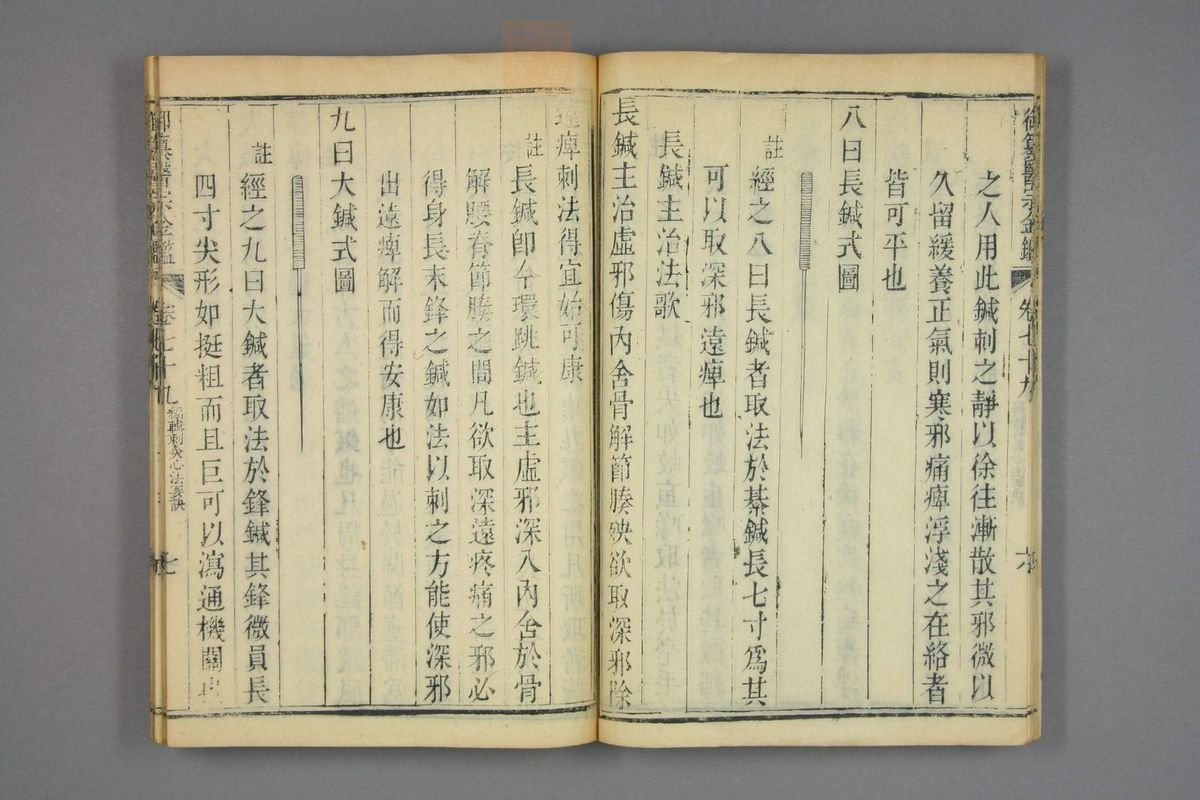 御纂醫宗金鑑
卷七十九
六
之人用此鍼刺之靜以徐往漸散其邪微以
久留緩養正氣則寒邪痛痺浮淺之在絡者
皆可平也
八曰長鍼式圖
註
經之八曰長鍼者取法於綦鍼長七寸為其
可以取深邪遠痺也
長鍼主治法歌
長鍼主治虛邪傷內舍骨解節腠殃欲取深邪除
遠痺刺法得宜始可康
註
長鍼即今環跳鍼也主虛邪深入內舍於骨
解腰脊節腠之間凡欲取深遠疼痛之邪必
得身長末鋒之鍼如法以刺之方能使深邪
出遠痺解而得安康也
九曰大鍼式圖
註
經之九曰大鍼者取法於鋒鍼其鋒微員長
四寸尖形如挺粗而且巨可以瀉通機關
御纂醫宗金鑑
卷七十九
編輯刺灸心法要訣
七